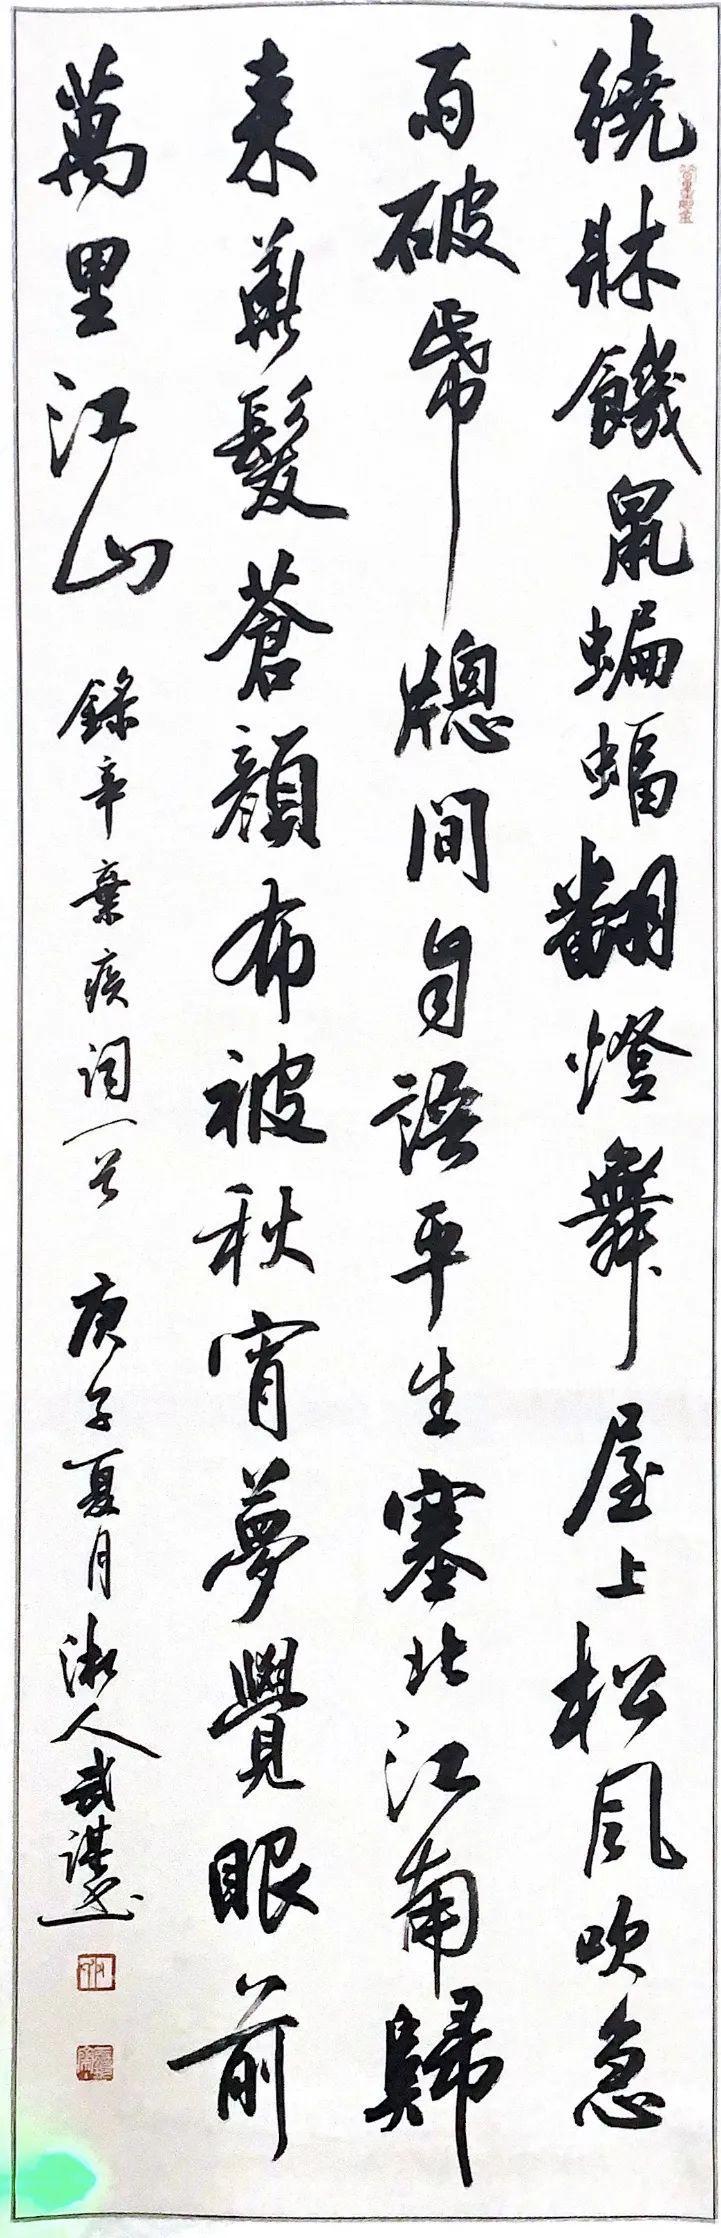 繞牀饑鼠蝙蝠翻燈舞屋上松風吹急
雨破帋牕間自語平生塞北江南歸
來華髮蒼顏布被秋宵夢覺眼前
萬里江山 錄辛棄疾词一首 庚子夏月湘人武謀書